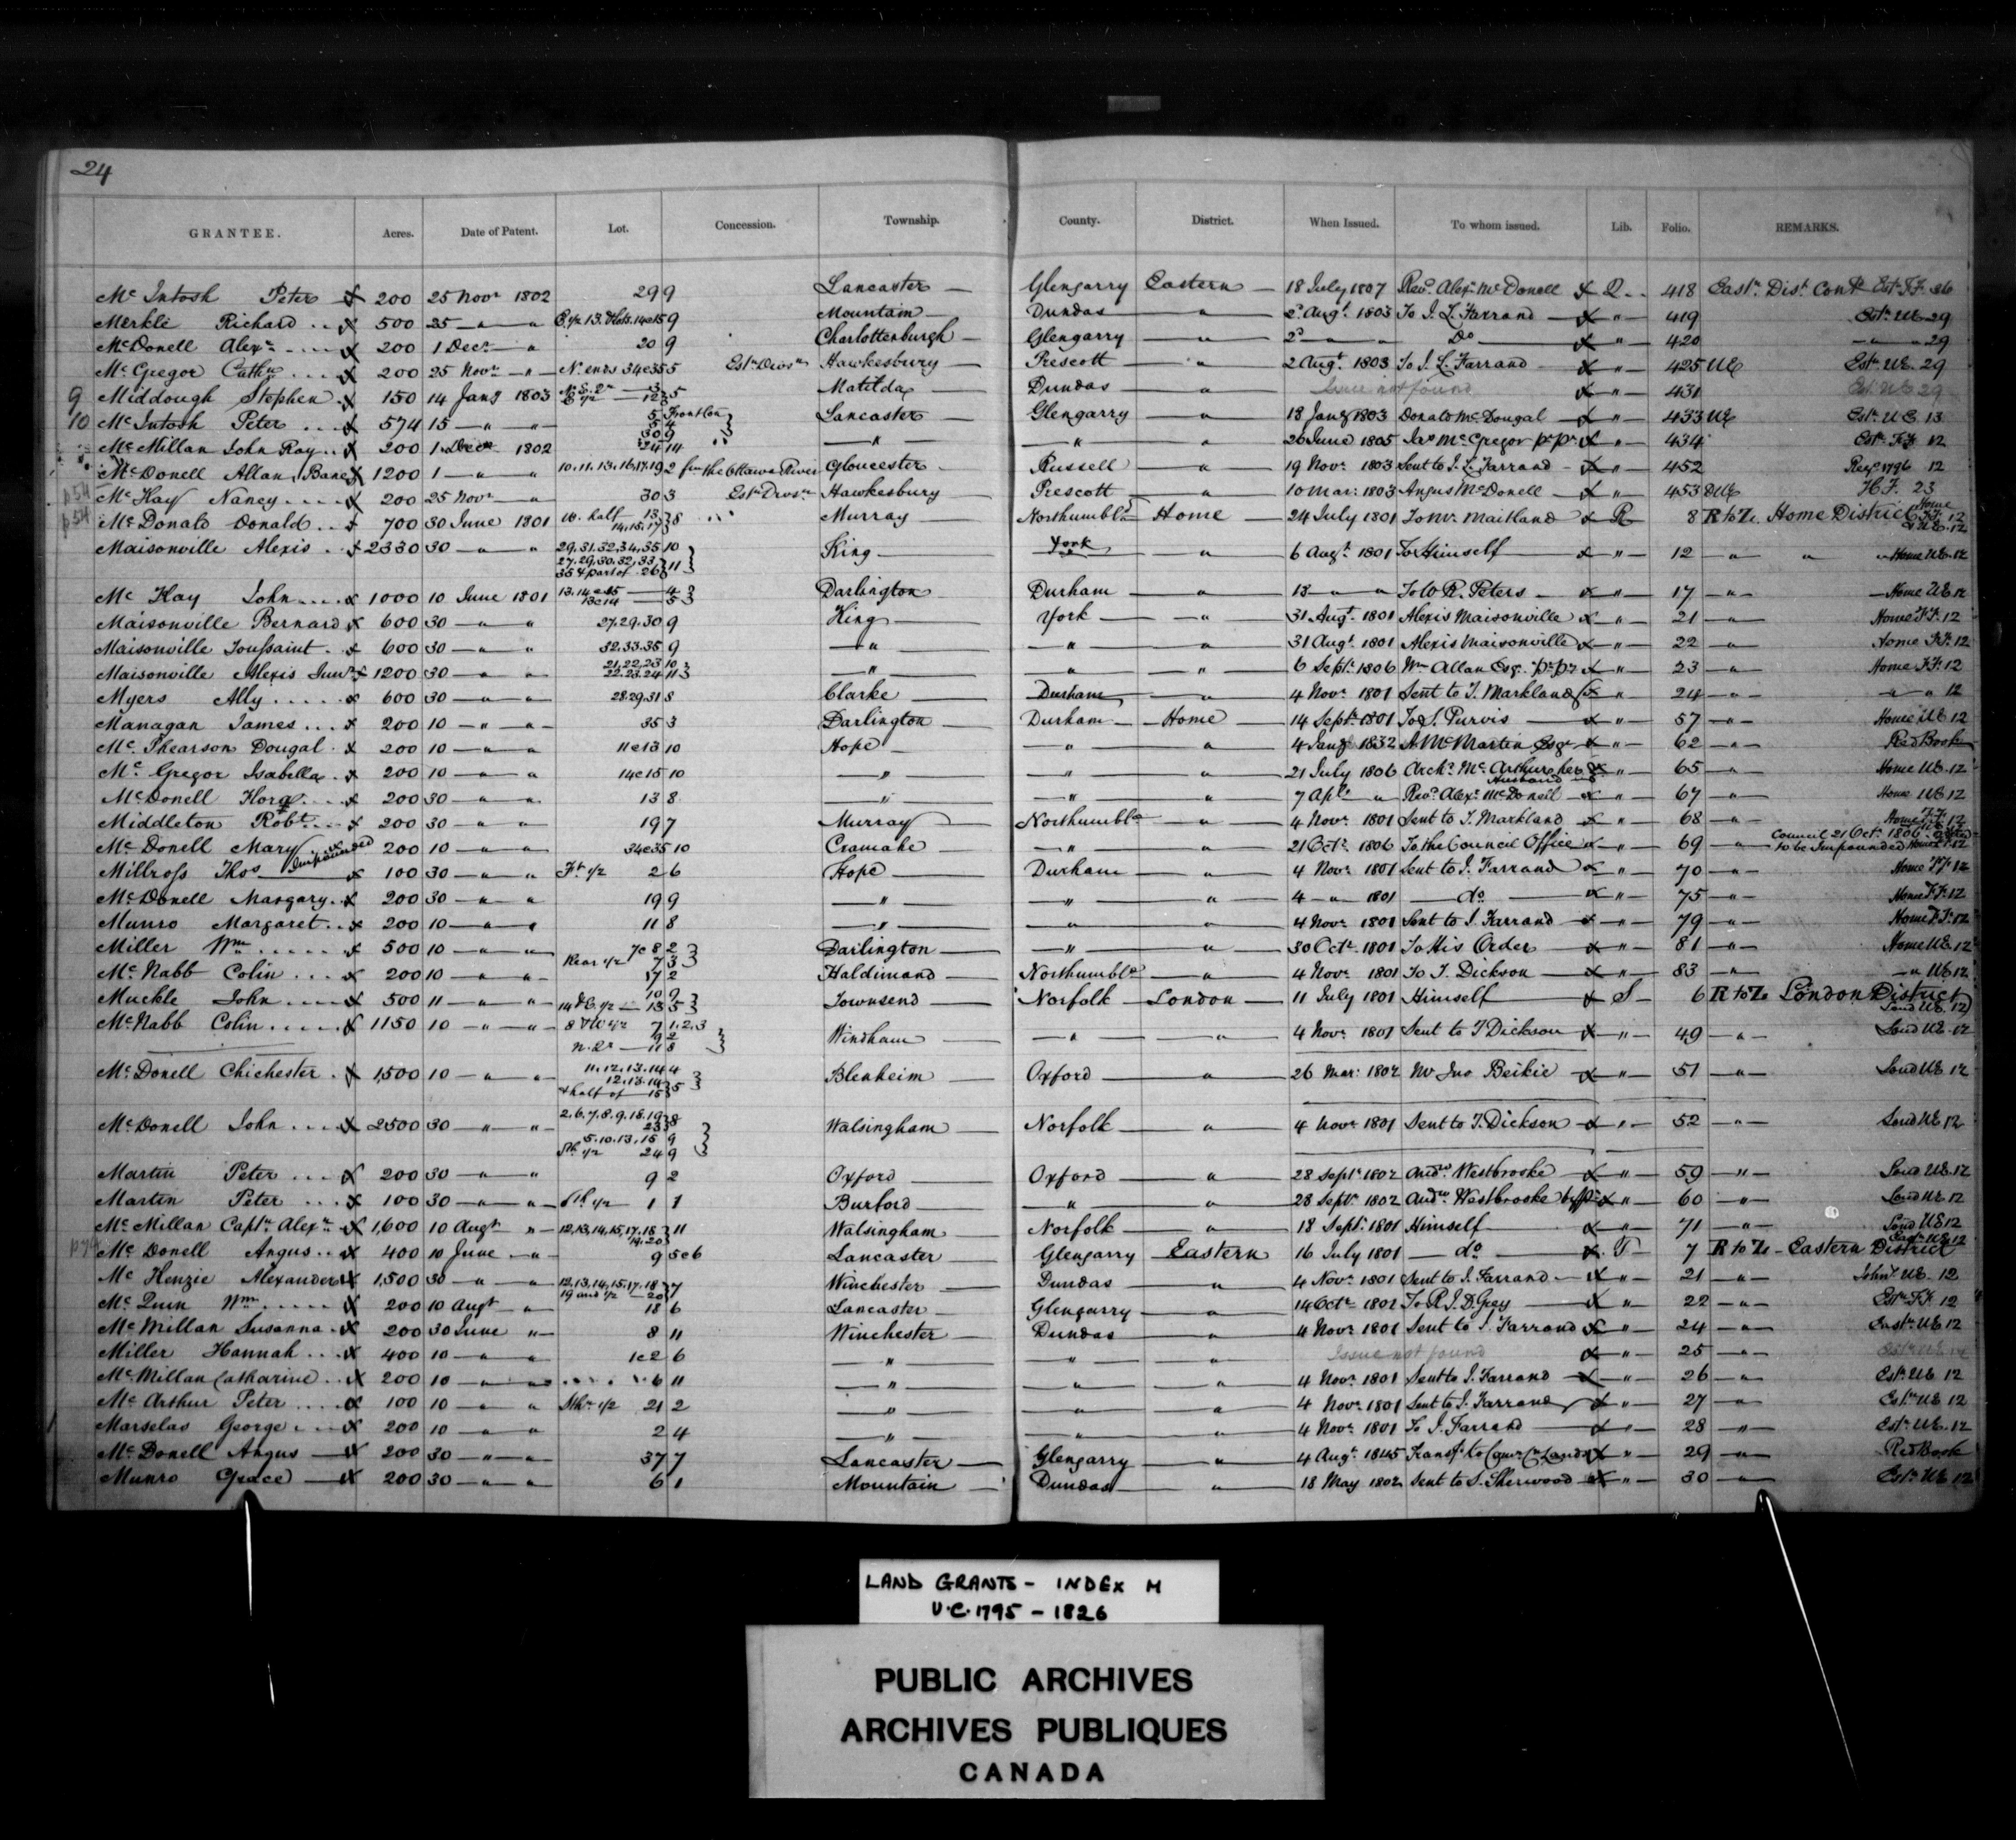 24
GRANTEE. Acres. Date of Patent. Lot. Concession. Township. County. District. When Issued. To whom issued. Lib. Folio. REMARKS.
Mc Intosh Peter 200 25 Novr 1802 29 9 Lancaster Glengarry Eastern 18 July 1807 Revd Alexr McDonell Q 418 Eastn Dist Contd Estn F.F. 26
Merkle Richard 500 25 " " 9 Mountain Dundas " 2d Augt 1803 To J. L. Farrand " 419 Estn UE 29
McDonell Alexr 200 1 Decr " 20 9 Charlottenburgh Glengarry " 2d " " Do " 420 " " 29
McGregor Cathn 200 25 Novr " N. ends 34e35 5 Estn Divsn Hawkesbury Prescott " 2 Augt 1803 To J. L. Farrand " 425 UE Estn UE. 29
9 Middough Stephen 150 14 Jany 1803 Matilda Dundas " Issue not found " 431 Est UE 29
10 McIntosh Peter 574 15 " " 5 Front Con 5 4 30 9 Lancaster Glengarry " 18 Jany 1803 Donald McDougal " 433 UE Estn UE 13
McMillan John Roy 200 1 Decr 1802 14 " " " 26 June 1805 Jas McGregor pr pr " 434 Estn F.F. 12
McDonell Allan, Bane 1200 1 " " 10.11.13.16.17.19 2 fm the Ottawa River Gloucester Russell " 19 Novr 1803 Sent to J. L. Farrand " 452 Regr 1796 12
p54 McKay Nancy 200 25 Novr " 30 3 Estn Divsn Hawkesbury Prescott " 10 Mar: 1803 Angus McDonell " 453 DUE H.F. 23
p54 McDonald Donald 700 30 June 1801 W. half 13 14.15.17 8 Murray Northumbld Home 24 July 1801 To Mr Maitland R 8 R to Z. Home District Home F.F. 12
Maisonville Alexis 2330 30 " " 29.31.32.34.35 10 27.29.30.32.33 35 & part of 26 11 King York " 6 Augt 1801 To Himself " 12 " " " Home UE. 12
Mc Kay John 1000 10 June 1801 13.14e15 4 13e14 5 Darlington Durham " 13 " " To W R. Peters " 17 " Home UE 12
Maisonville Bernard 600 30 " " 27.29.30 9 King York " 31 Augt 1801 Alexis Maisonville " 21 " Home F.F. 12
Maisonville Toussaint 600 30 " " 32.33.35 9 " " " 31 Augt 1801 Alexis Maisonville " 22 " Home F.F. 12
Maisonville Alexis Junr 1200 30 " " 21.22.23 10 22.23.24 11 " " " 6 Septr 1806 Wm Allan Esqr pr pr " 23 " Home F.F. 12
Myers Ally 600 30 " " 28.29.31 8 Clarke Durham " 4 Novr 1801 Sent to T. Markland " 24 " " " 12
Managan James 200 10 " " 35 3 Darlington Durham Home 14 Septr 1801 To S. Purvis " 57 " Home UE 12
Mc Phearson Dougal 200 10 " " 11e13 10 Hope " " 4 Jany 1832 A McMartin Esqr " 62 " Red Book
Mc Gregor Isabella 200 10 " " 14e15 10 " " " 21 July 1806 Archd McArthur her Husband " 65 " Home UE 12
McDonell Flora 200 30 " " 13 8 " " " 7 Apl " Revd Alexr McDonell " 67 " Home UE 12
Middleton Robt 200 30 " " 19 7 Murray Northumbld " 4 Novr 1801 Sent to T. Markland " 68 " Home F.F. 12
McDonell Mary Impounded 200 10 " " 34e35 10 Cramahe " " 21 Octr 1806 To the Council Office " 69 " Council 21 Octr 1806 to be Impounded
Millross Thos 100 30 " " Ft 1/2 2 6 Hope Durham " 4 Novr 1801 Sent to J. Farrand " 70 " Home F.F. 12
McDonell Margary 200 30 " " 19 9 " " " 4 " 1801 do " 75 " Home F.F. 12
Munro Margaret 200 10 " " 11 8 " " " 4 Novr 1801 Sent to J. Farrand " 79 " Home F.F. 12
Miller Wm 500 10 " " 7e8 2 Rear 1/2 7 3 Darlington " " 30 Octr 1801 To His Order " 81 " Home UE. 12
McNabb Colin 200 10 " " 17 2 Haldimand Northumbld " 4 Novr 1801 To T. Dickson " 83 " " UE 12
Muckle John 500 11 " " 10 9 13 5 Townsend Norfolk London 11 July 1801 Himself S 6 R to Z. London District Lond UE. 12
McNabb Colin 1150 10 " " 7 1.2.3 9 2 11 8 Windham " " 4 Novr 1801 Sent to T Dickson " 49 " Lond UE. 12
McDonell Chichester 1,500 10 " " 11.12.13.14 4 12.13.14 & half of 15 5 Blenheim Oxford " 26 Mar: 1802 Mr Jno Beikie " 51 " Lond UE 12
McDonell John 2500 30 " " 2.6.7.8.9.18.19 23 8 5.10.13.15 9 Sth 1/2 24 9 Walsingham Norfolk " 4 Novr 1801 Sent to T. Dickson " 52 " Lond UE 12
Martin Peter 200 30 " " 9 2 Oxford Oxford " 28 Septr 1802 Andw Westbrooke " 59 " Lond UE. 12
Martin Peter 100 30 " " Sth 1/2 1 1 Burford " " 28 Septr 1802 Andw Westbrooke " 60 " Lond UE 12
Mc Millan Captn Alexr 1,600 10 Augt " 12.13.14.15.17.18 19.20 11 Walsingham Norfolk " 18 Septr 1801 Himself " 71 " Lond UE 12
Mc Donell Angus 400 10 June " 9 5e6 Lancaster Glengarry Eastern 16 July 1801 do T 7 R to Z - Eastern District
Mc Kenzie Alexander 1,500 30 " " 12.13.14.15.17.18 19 and 1/2 20 7 Winchester Dundas " 4 Novr 1801 Sent to J. Farrand " 21 " Johnt UE. 12
Mc Quin Wm 200 10 Augt " 18 6 Lancaster Glengarry " 14 Octr 1802 To R. J. D. Grey " 22 " Estn F.F. 12
McMillan Susanna 200 30 June " 8 11 Winchester Dundas " 4 Novr 1801 Sent to J. Farrand " 24 " Eastn UE 12
Miller Hannah 400 10 " " 1e2 6 " " " Issue not found " 25 " Estn UE 12
McMillan Catharine 200 10 " " 6 11 " " " 4 Novr 1801 Sent to J. Farrand " 26 " Estn UE. 12
McArthur Peter 100 10 " " Sthn 1/2 21 2 " " " 4 Novr 1801 Sent to J. Farrand " 27 " Estn UE 12
Marselas George 200 10 " " 2 4 " " " 4 Novr 1801 To J. Farrand " 28 " Estn UE. 12
McDonell Angus 200 30 " " 37 7 Lancaster Glengarry " 4 Augt 1845 Transfd to Comr Cn Lands " 29 " Red Book
Munro Grace 200 30 " " 6 1 Mountain Dundas " 18 May 1802 Sent to S. Sherwood " 30 " Estn UE 12
LAND GRANTS - INDEX M
U.C. 1795 - 1826
PUBLIC ARCHIVES
ARCHIVES PUBLIQUES
CANADA